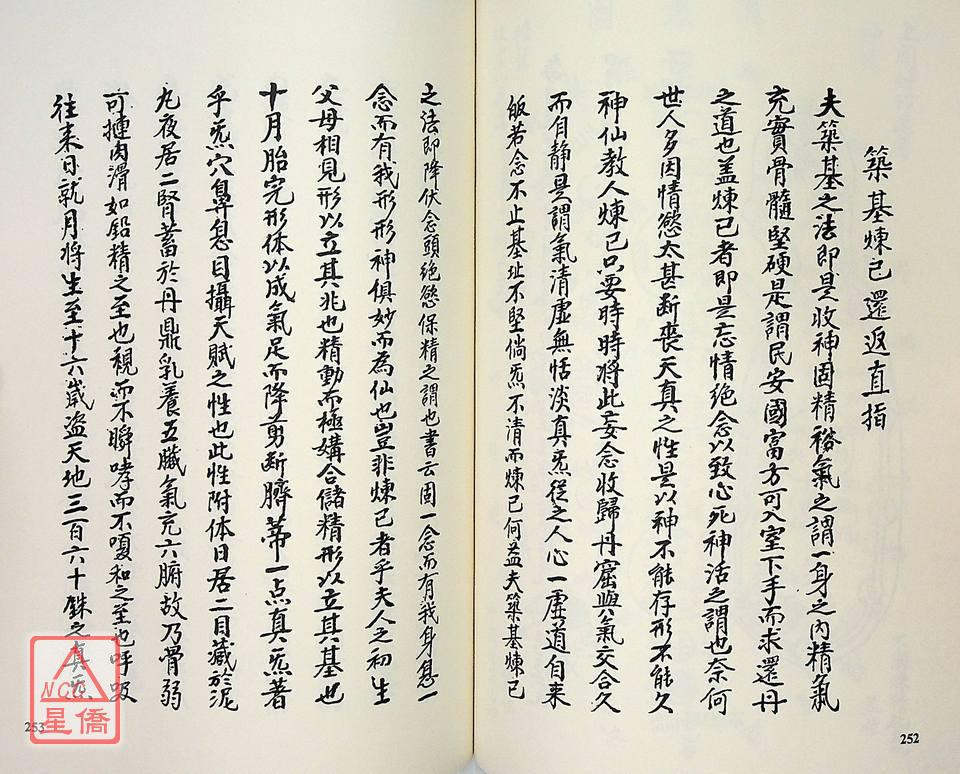 築基煉己還返直指
夫築基之法即是收神固精裕氣之謂一身之內精氣
充實骨髓堅硬是謂民安國富方可入室下手而求還丹
之道也盖煉己者即是忘情絕念以致心死神活之謂也奈何
世人多因情慾太甚斷喪天真之性是以神不能存形不能久
神仙教人煉己只要時時將此妄念收歸丹窟與氣交合久
而自静是謂氣清虛無恬淡真炁從之人心一虛道自来
皈若念不止基址不堅倘炁不清而煉己何益夫築基煉己
之法即降伏念頭絕慾保精之謂也書云固一念而有我身息一
念而有我形形神俱妙而為仙也豈非煉己者乎夫人之初生
父母相見形以立其兆也精動而極媾合儲精形以立其基也
十月胎完形体以成氣足而降剪斷臍蒂一点真炁著
乎炁穴鼻息目攝天賦之性也此性附体日居二目藏於泥
丸夜居二腎蓄於丹鼎乳養五臟氣充六腑故乃骨弱
可摙肉滑如鉛精之至也視而不瞬哮而不嗄和之至也呼吸
往来日就月將生至十六歲盜天地三百六十銖之真炁
252
253
NCC
星僑